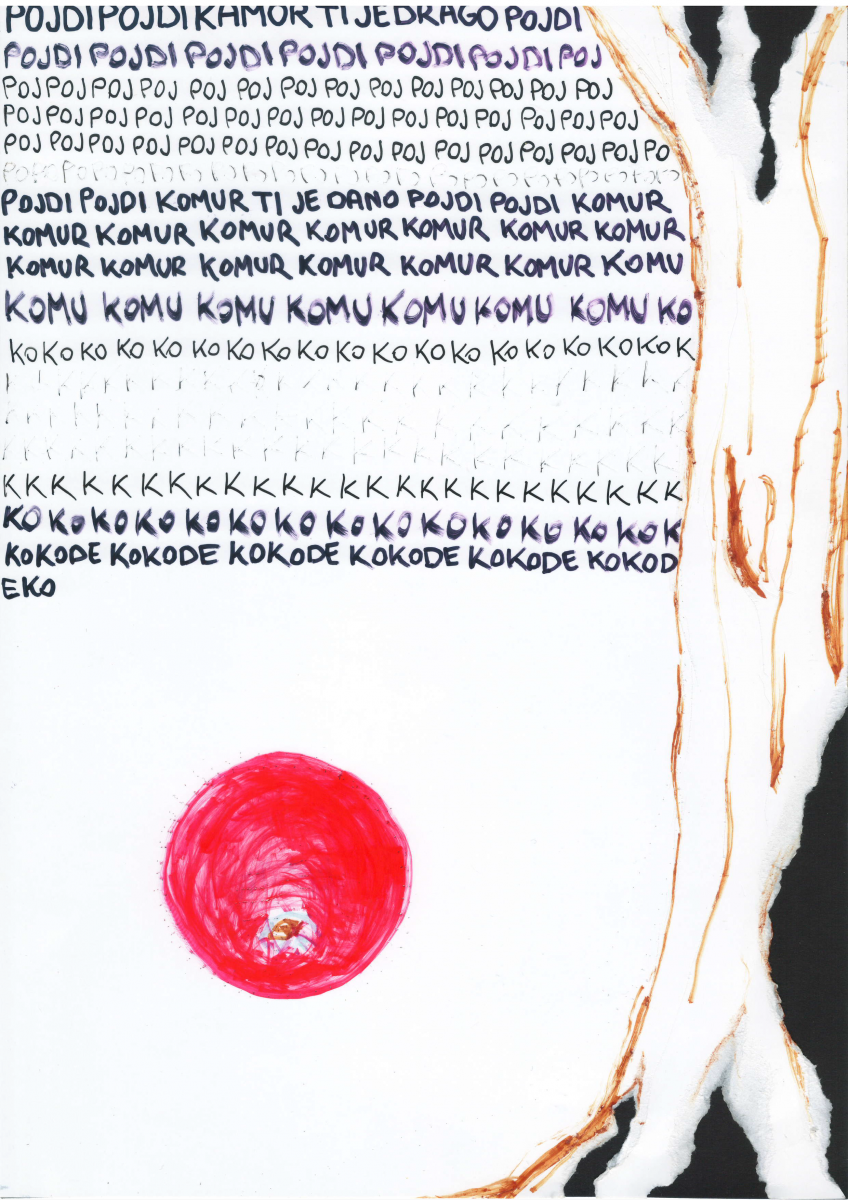 POJDI POJDI KAMOR TI JE DRAGO POJDI
POJDI POJDI POJDI POJDI POJDI POJDI POJ
POJ POJ POJ POJ POJ POJ POJ POJ POJ POJ POJ POJ POJ POJ
POJ POJ POJ POJ POJ POJ POJ POJ POJ POJ POJ POJ POJ POJ POJ
POJ POJ POJ POJ POJ POJ POJ POJ POJ POJ POJ POJ POJ POJ POJ PO
POJDI POJDI KOMUR TI JE DANO POJDI POJDI KOMUR
KOMUR KOMUR KOMUR KOMUR KOMUR KOMUR KOMUR
KOMUR KOMUR KOMUR KOMUR KOMUR KOMUR KOMU
KOMU KOMU KOMU KOMU KOMU KOMU KOMU KO
KO KO KO KO KO KO KO KO KO KO KO KO KO KO KO KO KO KO K
K K K K K K K K K K K K K K K K K K K K K K K K K
KO KO KO KO KO KO KO KO KO KO KO KO KO KO K
KOKODE KOKODE KOKODE KOKODE KOKODE KOKOD
EKO